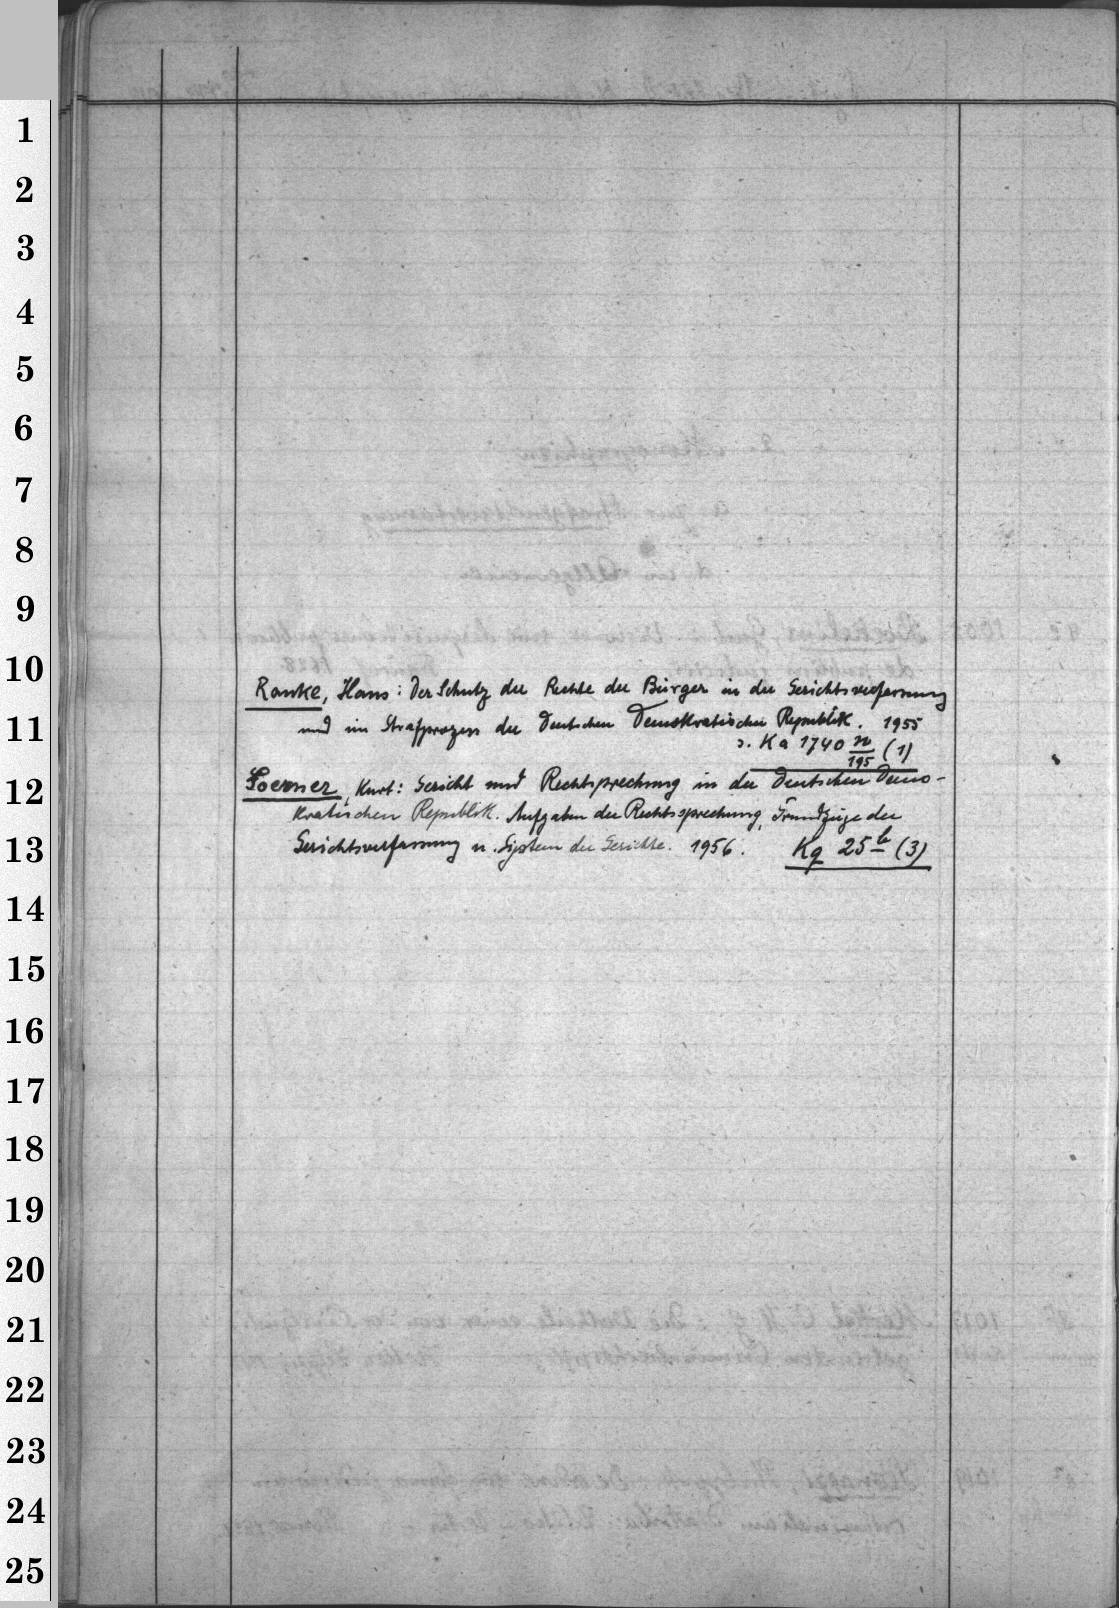 1
2
3
4
5
6
7
8
9
10
Ranke, Hans: Der Schutz der Rechte der Bürger in der Gerichtsverfassung
11
und im Strafprozess der Deutschen Demokratischen Republik. 1955
s. Ka 1740 n/195 (1)
12
Goerner, Kurt: Gericht und Rechtsprechung in der Deutschen Demo-
kratischen Republik. Aufgaben der Rechtssprechung, Grundzüge der
13
Gerichtsverfassung u. System der Gerichte. 1956. Kq 25 b (3)
14
15
16
17
18
19
20
21
22
23
24
25